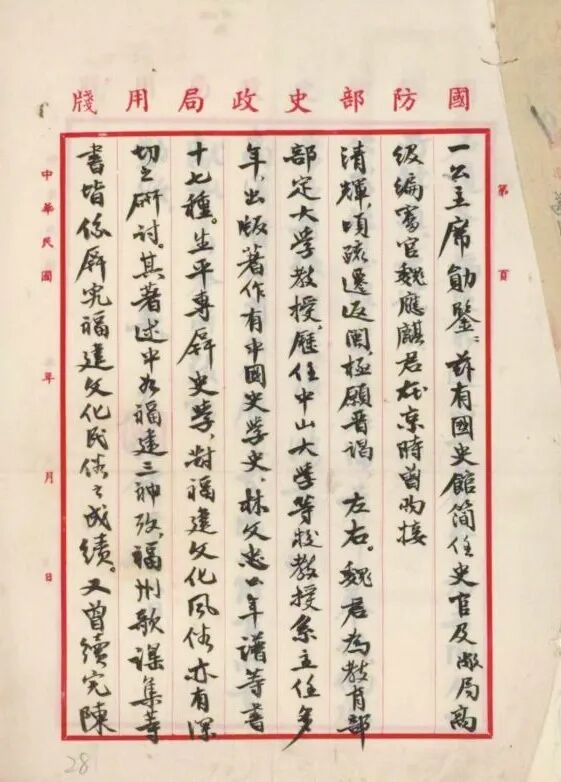 國防部史政局用牋
第 頁
一公主席勛鑒：茲有國史館簡任史官及敝局高
級編審官魏應麒君在京時曾為接
清輝，頃疏遷返閩，極願晋謁 左右。魏君為教育部
部定大学教授，歷任中山大学等校教授系主任多
年，出版著作有中國史学史、林文忠公年譜等書
十七種。生平專研史学，對福建文化風俗亦有深
切之研討。其著述中如福建三神攷，福州歌謡集等
書皆係研究福建文化民俗之成績。又曾續完陳
中華民國 年 月 日
28